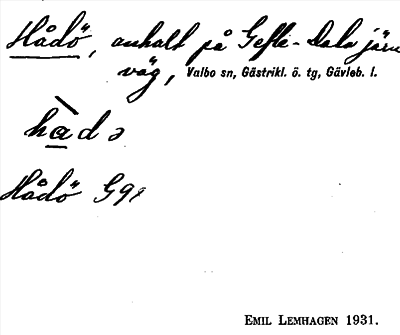 Hådö, anhalt på Gefle-Dala järn
väg, Valbo sn, Gästrikl. ö. tg, Gävleb. l.
hàdə
Hådö
EMIL LEMHAGEN 1931.